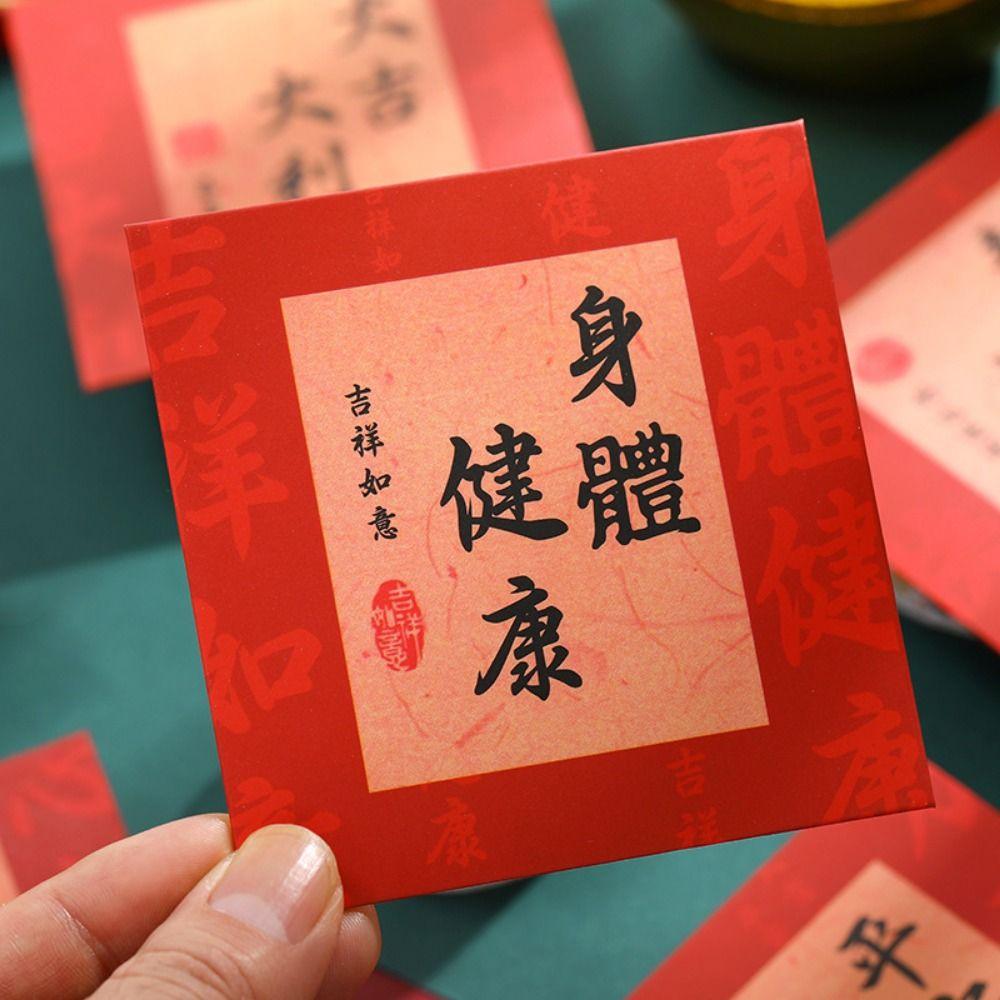 身體
健康
吉祥如意
吉祥
如意
身體健康
吉祥如
健
吉祥如
康
吉祥
大吉
大利
平